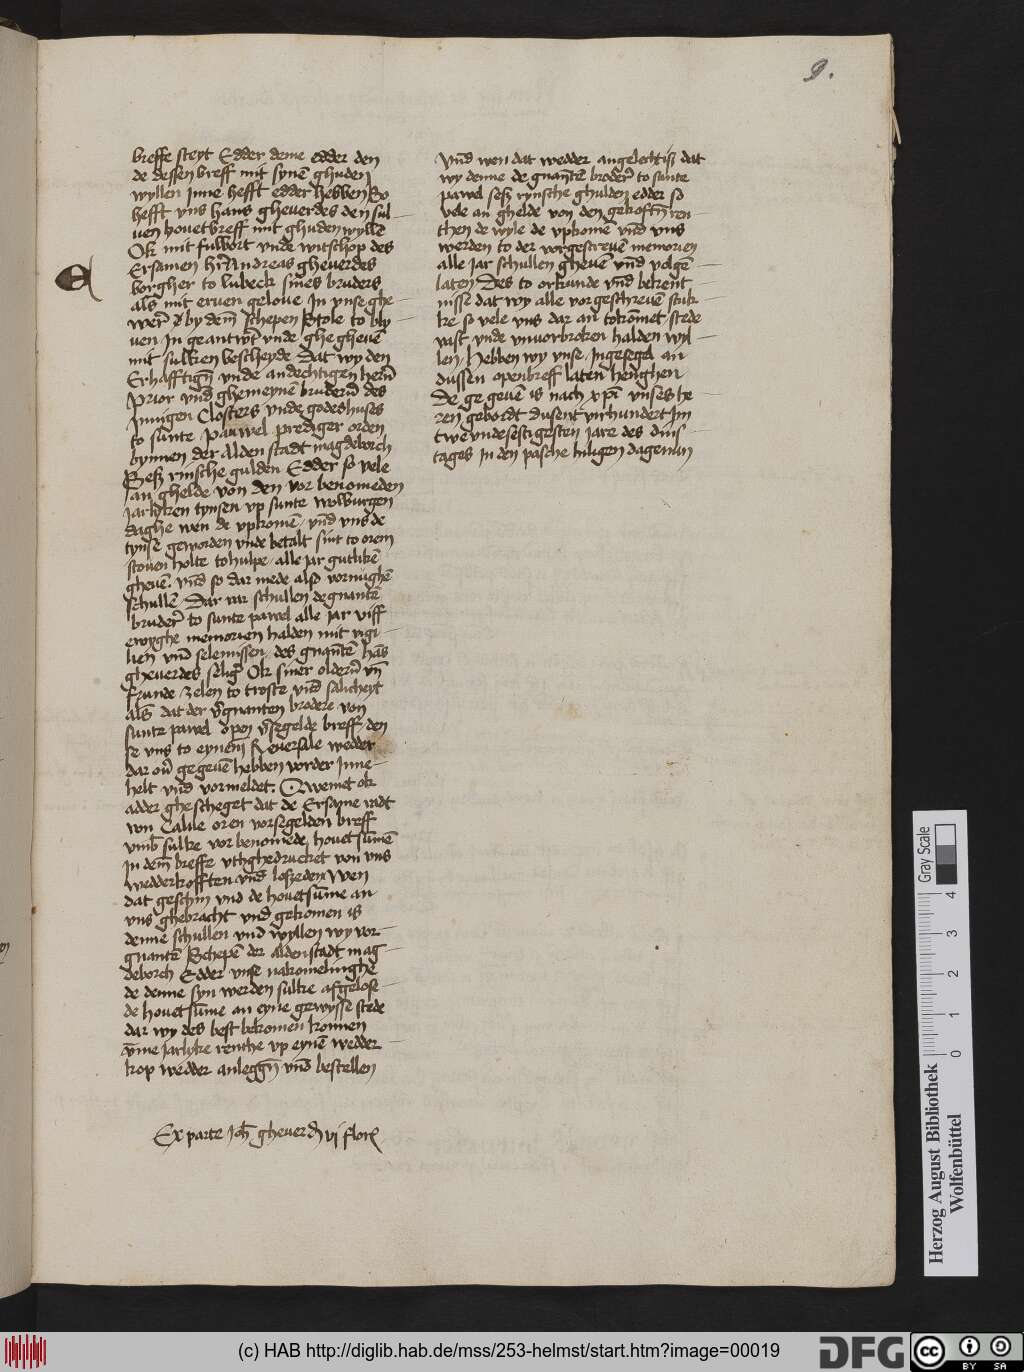 9.
breffe steyt Edder deme edder den
de dessen breff mit synē ghuden
wyllen Inne hefft edder hebben So
hefft vns hans gheuerdes den sul-
uen houetbreff mit ghuden wyllē
Ok mit fulbort vnde witschop des
Ersamen hr̄n Andreas gheuerdes
borgher to lubeck sines bruders
als mit eruen geloue In vnse ghe
were by dem schepen Stole to bly-
uen In geantwr̄t vnde ghe gheuē
mit sulken bescheyde Dat wy den
Erhafftign̄ vnde andechtigen hern̄
Prior vnd ghemeynē brudern̄ des
Innigen Closters vnde godeshuses
to sunte pauwel prediger orden
bynnen der Alden stadt magdeborch
Sesz rinsche gulden Edder so vele
an ghelde von den vor benomeden
jarlyken tynsen vp sunte wolburgen
daghe wen de vpkomē vnd vns de
tynse geworden vnde betalt sint to orem
stouen holte tohulpe alle jar gutlikē
gheuē. vnd so dar mede also vornughē
schullē Dar vor schullen de gnantē
bruder̄ to sunte pawel alle jar viff
ewyghe memorien halden mit vigi-
lien vnd selemissen des gnantē hās
gheuerdes seliḡ Ok siner oldern̄ vn̄
frunde zelen to troste vnd salicheyt
als dat der v̄gnanten brodere von
sunte pawel open v̄segelde breff den
se vns to eynem Reuersale wedder
dar ou̅ gegeuē hebben vorder Inne-
helt vnd vormeldet. Queme ok
adder ghescheget dat de Ersame radt
von Calue oren vorsegelden breff
vmb̄ sulke vor benomede houet sūmē
In dem breffe vthghedrucket von vns
wedderkofften vnd loszeden Wen
dat geschyn vnd de houetsūme an
vns ghebracht vnd gekomen is
denne schullen vnd wyllen wy vor-
gnantē Schepē der aldenstadt mag-
deborch Edder vnse nakomelinghe
de denne syn werden sulke afgelose-
de houetsūme an eyne gewysse stede
dar wy des best bekomen konnen
v̄me jarlyke renthe vp eynē wedder-
kop wedder anleggn̄ vnd bestellen
Ex parte joh̄ gheuerd̄ vi flor̄
Vnd wen dat wedder angelechtisz dat
wy denne de gnantē broder̄ to sunte
pawel sesz rynsche ghulden edder so
vele an ghelde von den gekofftn̄ ren-
then de wyle de vpkome vnd vns
werden to der vorgescreuē memorien
alle Jar schullen gheuē vnd volgē
laten Des to orkunde vnd bekent-
nisse dat wy alle vorgeschreuē stuk-
ke so vele vns dar an tokōmet stede
vast vnde vnuorbroken halden wyl-
len Hebben wy vnse Ingesegel an
dussen openbreff laten henghen
De ge geuē is nach xp̄i vnses he-
ren gebordt dusent virhundert Im
twevndesestigesten jare des dins-
tages In den pasche hilligen dagenn
Gray Scale
0 1 2 3 4
Herzog August Bibliothek
Wolfenbüttel
(c) HAB http://diglib.hab.de/mss/253-helmst/start.htm?image=00019
DFG
cc BY SA